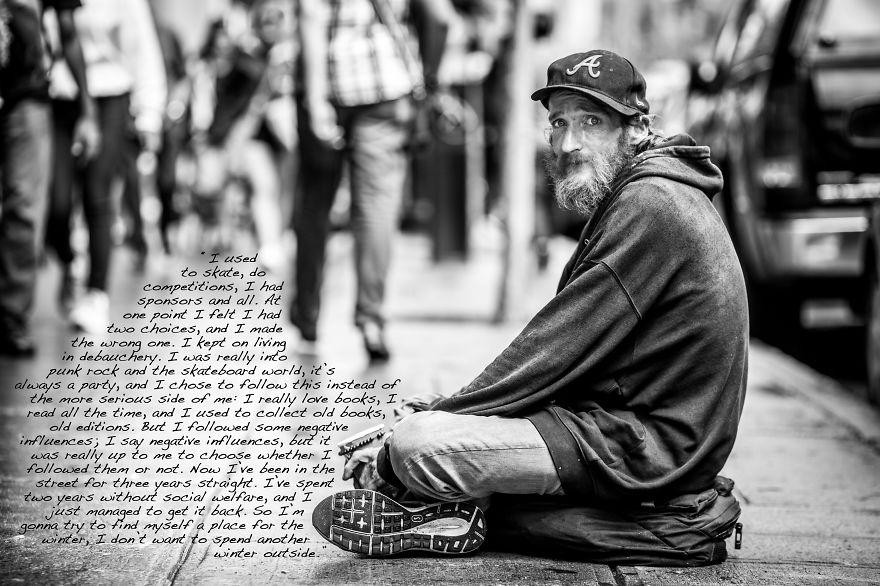 A
"I used
to skate, do
competitions, I had
sponsors and all. At
one point I felt I had
two choices, and I made
the wrong one. I kept on living
in debauchery. I was really into
punk rock and the skateboard world, it's
always a party, and I chose to follow this instead of
the more serious side of me: I really love books, I
read all the time, and I used to collect old books,
old editions. But I followed some negative
influences; I say negative influences, but it
was really up to me to choose whether I
followed them or not. Now I've been in the
street for three years straight. I've spent
two years without social welfare, and I
just managed to get it back. So I'm
gonna try to find myself a place for the
winter, I don't want to spend another
winter outside."